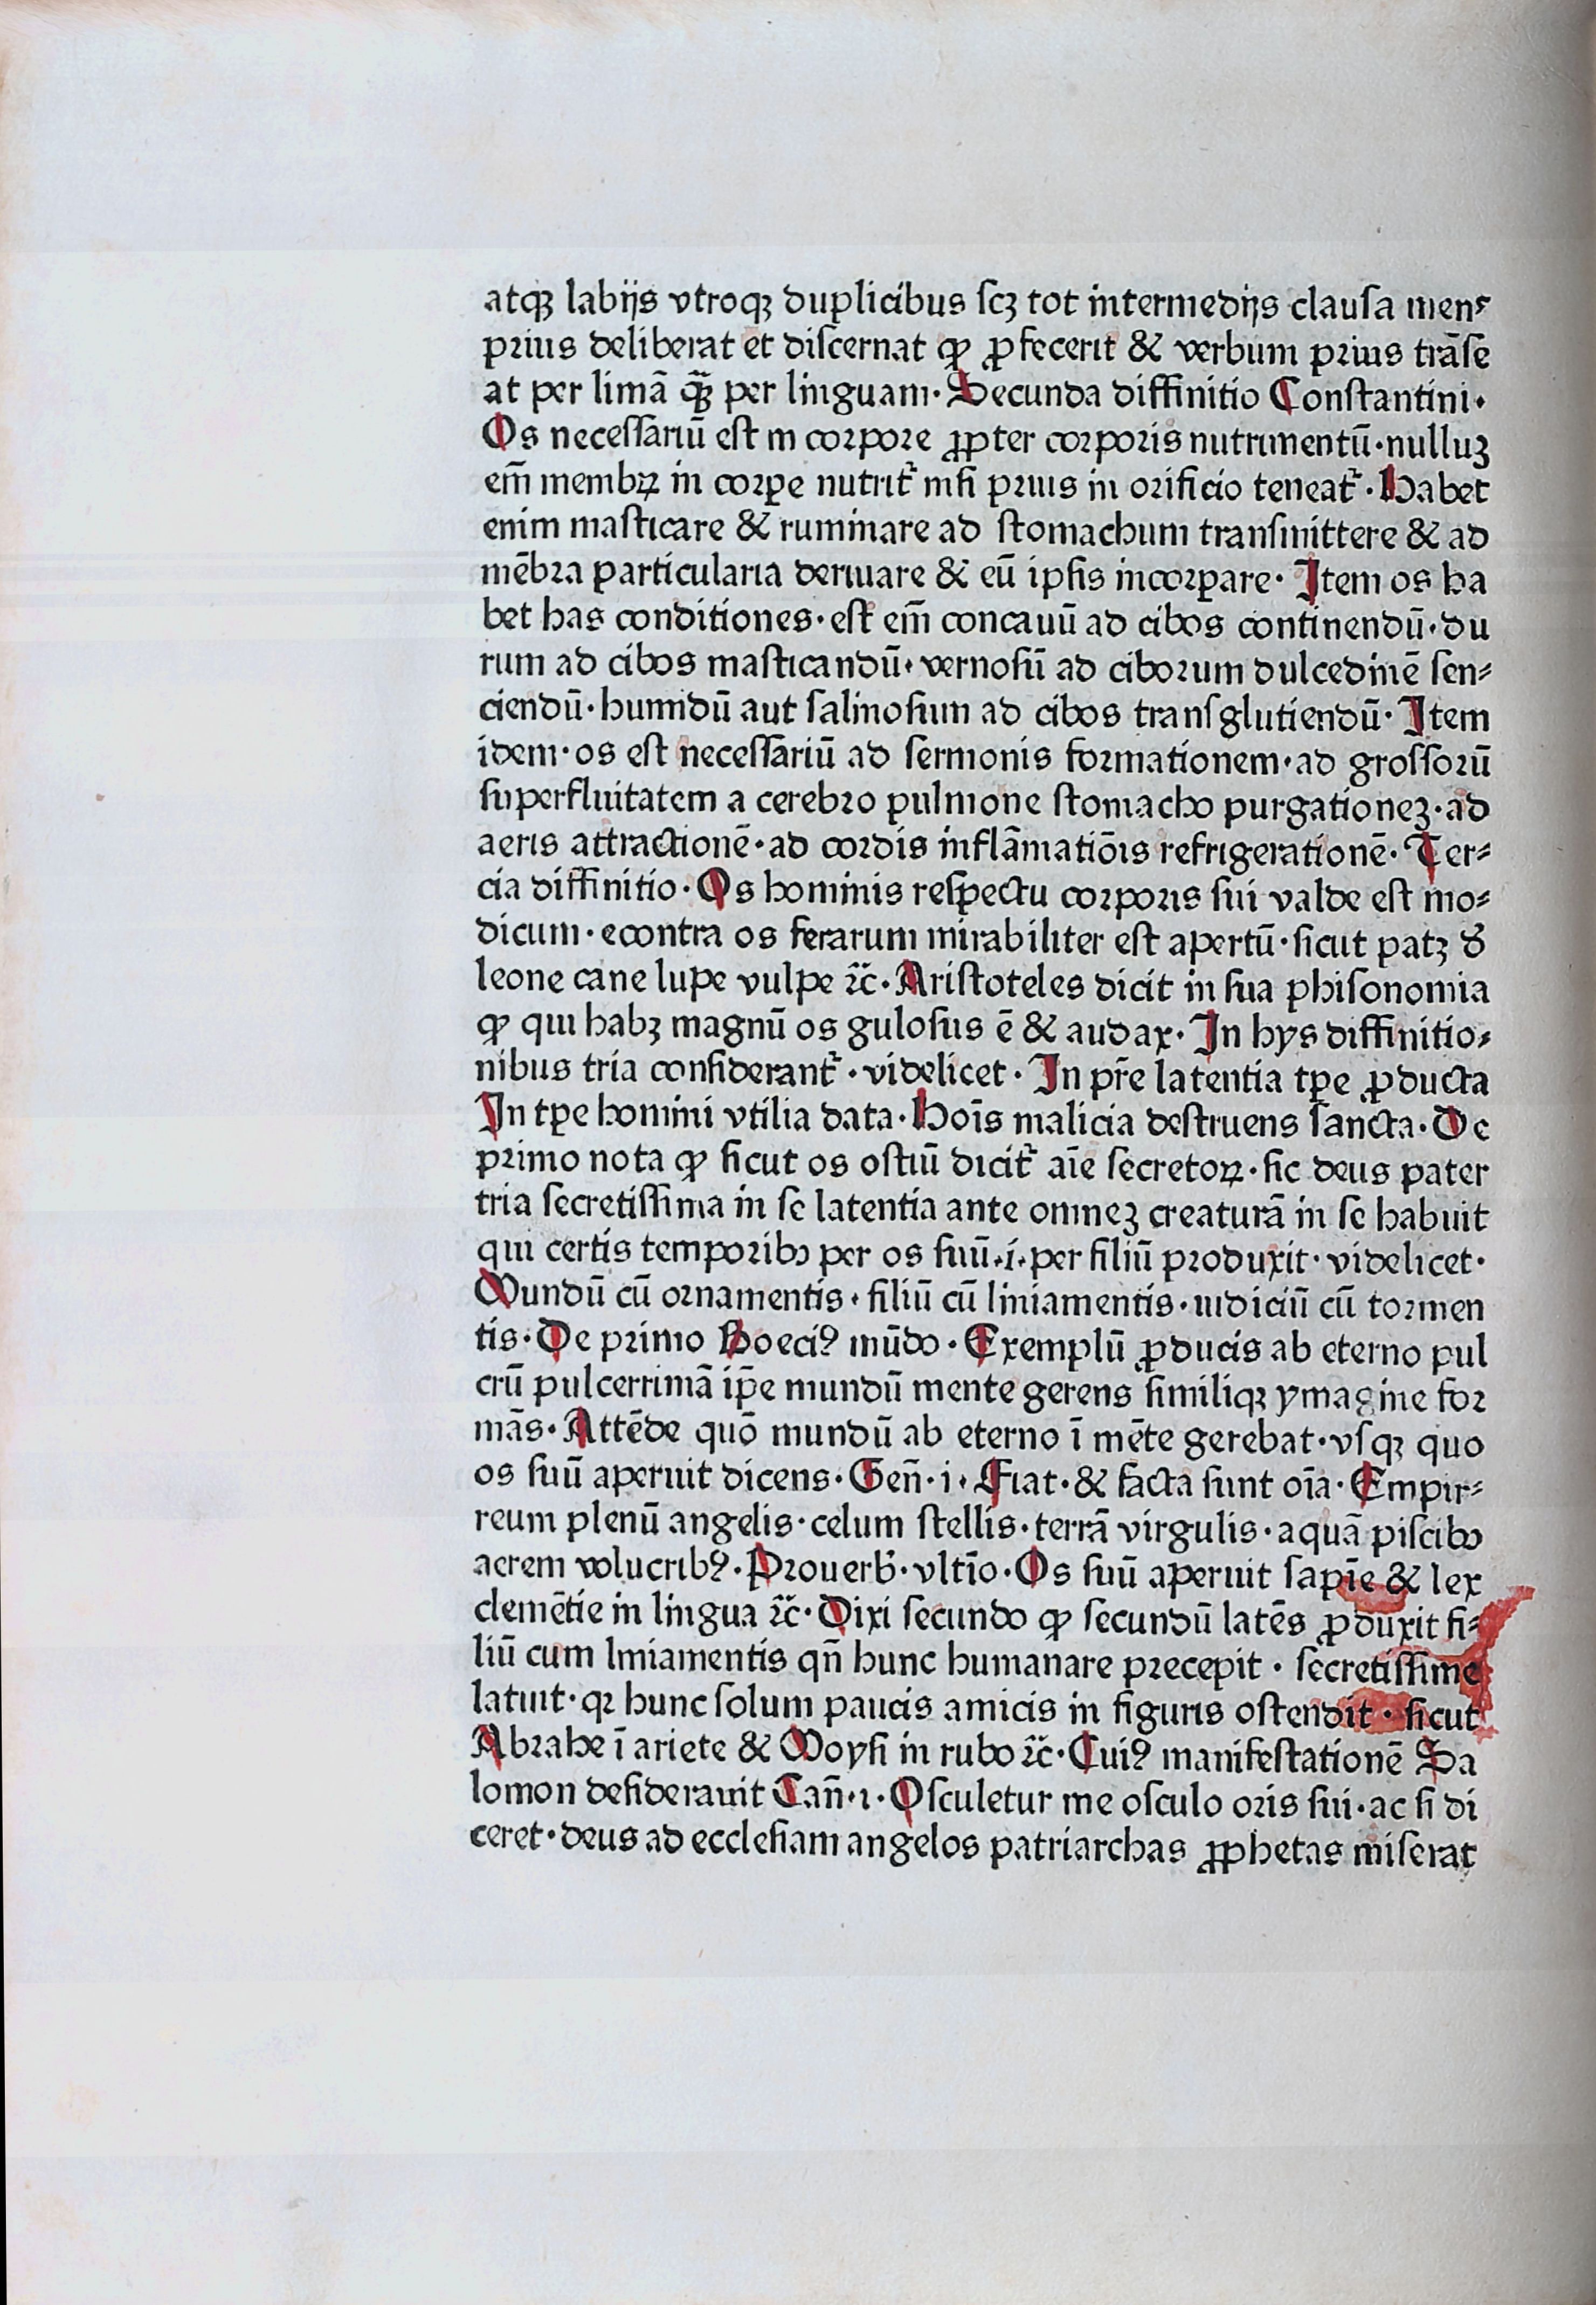 atqꝫ labijs vtroqꝫ duplicibus ſcꝫ tot intermedijs clauſa mens
prius deliberat et diſcernat ꝙ ꝓfecerit & verbum prius trãſe
at per limã q̃ꝫ per linguam· Secunda diffinitio Conſtantini·
Os neceſſariũ eſt in corpore ꝓpter corporis nutrimentũ·nulluꝫ
em̃ membꝝ in corꝑe nutrit᷑ niſi prius in orificio teneat᷑ · Habet
enim maſticare & ruminare ad ſtomachum tranſmittere & ad
mẽbra particularia deriuare & eũ ipſis incorꝑare· Item os ha
bet has conditiones·eſt em̃ concauũ ad cibos continendũ·du
rum ad cibos maſticandũ· vernoſũ ad ciborum dulcedinẽ ſen⸗
ciendũ·humidũ aut ſalinoſum ad cibos tranſglutiendũ· Item
idem·os eſt neceſſariũ ad ſermonis formationem·ad groſſorũ
ſuperfluitatem a cerebro pulmone ſtomacho purgationeꝫ·ad
aeris attractionẽ·ad cordis inflãmatiõis refrigerationẽ· Ter⸗
cia diffinitio· Os hominis reſpectu corporis ſui valde eſt mo⸗
dicum·econtra os ferarum mirabiliter eſt apertũ·ſicut patꝫ ꝺ̉
leone cane lupe vulpe ⁊c̃· Ariſtoteles dicit in ſua phiſonomia
ꝙ qui habꝫ magnũ os guloſus ẽ & audax· In hys diffinitio⸗
nibus tria conſiderant᷑ · videlicet · In pr̃e latentia tꝑe ꝓducta
In tꝑe homini vtilia data· Hoĩs malicia deſtruens ſancta· De
primo nota ꝙ ſicut os oſtiũ dicit᷑ aĩe ſecretoꝝ·ſic deus pater
tria ſecretiſſima in ſe latentia ante omneꝫ creaturã in ſe habuit
qui certis temporibꝰ per os ſuũ·i·per filiũ produxit· videlicet·
Mundũ cũ ornamentis· filiũ cũ liniamentis·iudiciũ cũ tormen
tis· De primo Boeciꝰ mũdo· Exemplũ ꝓducis ab eterno pul
crũ pulcerrimã ip̃e mundũ mente gerens ſimiliqꝫ ymagine for
mãs· Attẽde quõ mundũ ab eterno ĩ mẽte gerebat·vſqꝫ quo
os ſuũ aperuit dicens· Geñ·i· Fiat·& facta ſunt oĩa· Empir⸗
reum plenũ angelis·celum ſtellis·terrã virgulis·aquã piſcibꝰ
aerem volucribꝰ· Prouerb̃·vltĩo· Os ſuũ aperuit ſapĩe & lex
clemẽtie in lingua ⁊c̃· Dixi ſecundo ꝙ ſecundũ latẽs ꝓduxit fi⸗
liũ cum liniamentis qñ hunc humanare precepit · ſecretiſſime
latuit·qꝛ hunc ſolum paucis amicis in figuris oſtendit · ſicut
Abrahe ĩ ariete & Moyſi in rubo ⁊c̃· Cuiꝰ manifeſtationẽ Sa
lomon deſiderauit Cañ·1· Oſculetur me oſculo oris ſui·ac ſi di
ceret·deus ad eccleſiam angelos patriarchas ꝓphetas miſerat